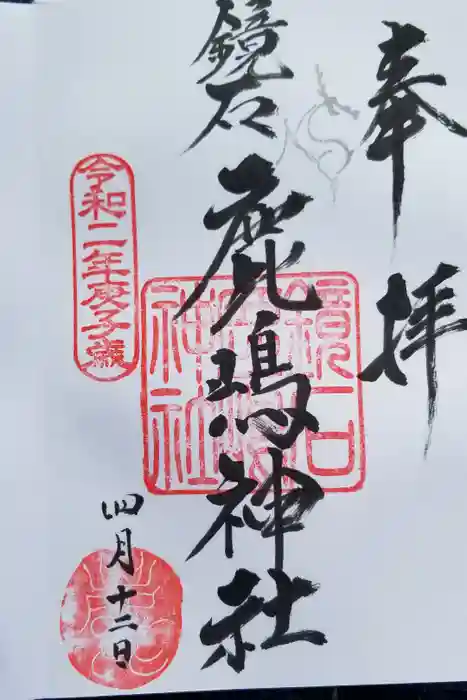 奉拝
鏡石
鹿嶋神社
鏡石鹿嶋神社
令和二年庚子歳
四月十二日